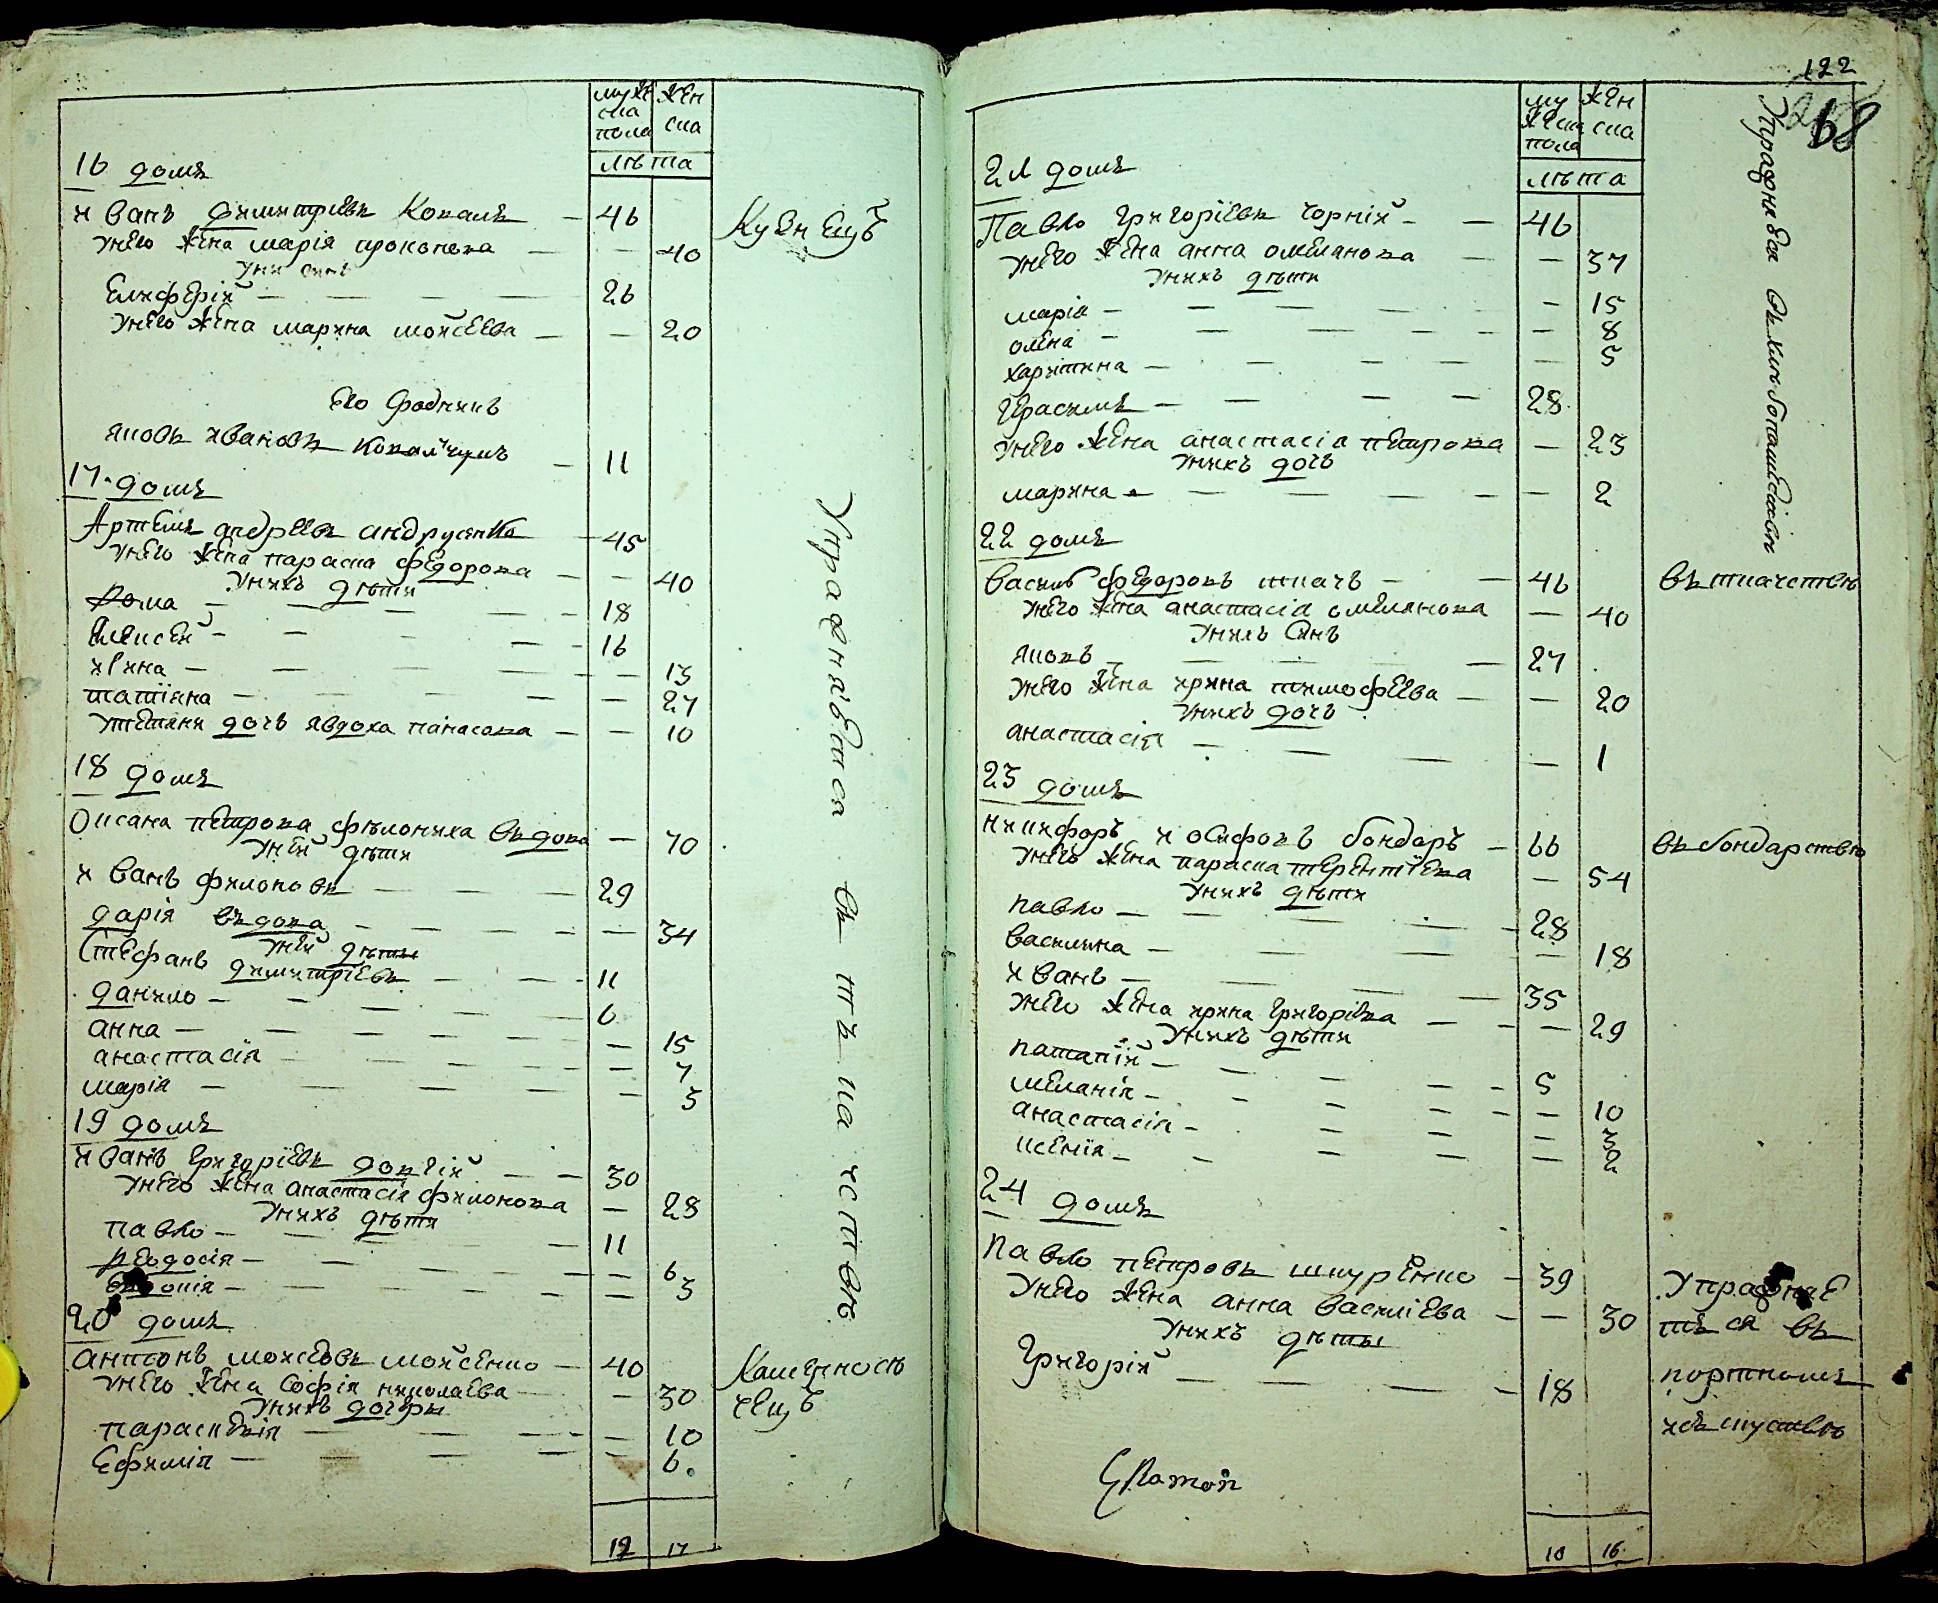 мужеска пола женска
лѣта
16 домъ
иванъ димитріевъ коваль 46
Кузнецъ
унего жена марія прокопова 40
уних синъ
Елиферій 26
унего жена марина мойсеева 20
Его родникъ
яковъ ивановъ ковалчукъ 11
17 домъ
Артемъ андрѣевъ андрусенко 45
унего жена параска федорова 40
унихъ дѣти
рома 18
Алексѣй 16
ирина 13
татіяна 27
утетяни дочь явдоха панасова 10
18 домъ
Оксана петрова филониха вдова 70
уней дѣти
иванъ филоновъ 29
дарія вдова 34
уней дѣти
Стефанъ димитріевъ 11
данило 6
анна 15
анастасія 7
марія 3
19 домъ
иванъ григоріевъ довгій 30
унего жена анастасія филонова 28
унихъ дѣти
павло 11
феодосія 6
3
20 домъ
антонъ мойсѣовъ мойсенко 40
унего жена софія николаева 30
унихъ дочери
параскевія 10
Ефимія 6
Упражняется въ
19 17
122
68
мужеска пола женска
лѣта
21 домъ
Павло григоріевъ чорній 46
унего жена анна омелянова 37
унихъ дѣти
марія 15
олена 8
харитина 5
герасимъ 28
унего жена анастасія петрова 23
унихъ дочь
марина 2
22 домъ
василь федоровъ ткачъ 46
въ ткачествѣ
унего жена анастасія омелянова 40
унихъ синъ
яковъ 27
унего жена ирина тимофеева 20
унихъ дочь
анастасія 1
23 домъ
никифоръ иосифовъ бондаръ 66
въ бондарствѣ
унего жена параска терентіева 54
унихъ дѣти
павло 28
василина 18
иванъ 35
унего жена ирина григоріева 29
унихъ дѣти
патапій 5
меланія 10
анастасія 3
ксенія 2
24 домъ
павло петровъ шкуренко 39
унего жена анна василіева 30
унихъ дѣти
григорій 18
Упражняется въ
портномъ
искуствѣ
10 16